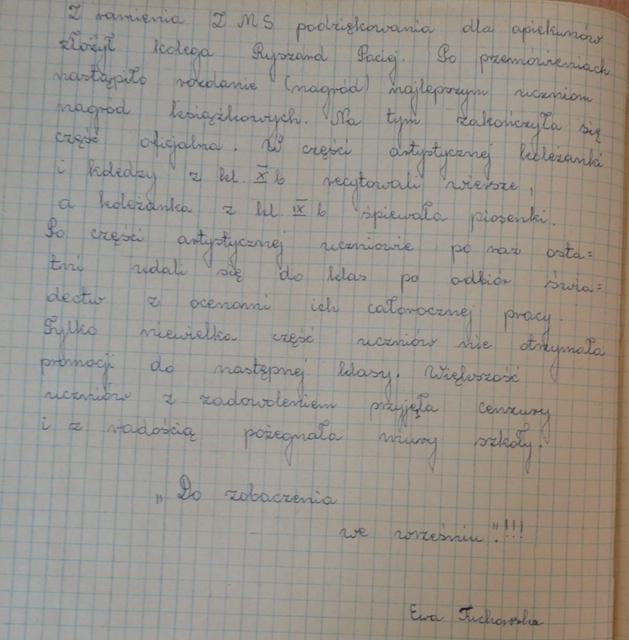 Z ramienia ZMS podziękowania dla opiekunów
złożył kolega Ryszard Paciej. Po przemówieniach
nastąpiło rozdanie (nagród) najlepszym uczniom
nagród książkowych. Na tym zakończyła się
część oficjalna. W części artystycznej koleżanki
i koledzy z kl. X b recytowali wiersze,
a koleżanka z kl. IX b śpiewała piosenki.
Po części artystycznej uczniowie po raz osta=
tni udali się do klas po odbiór świa=
dectw z ocenami ich całorocznej pracy.
Tylko niewielka część uczniów nie otrzymała
promocji do następnej klasy. Większość
uczniów z zadowoleniem przyjęła cenzury
i z radością pożegnała mury szkoły.
„Do zobaczenia
we wrześniu"!!!
Ewa